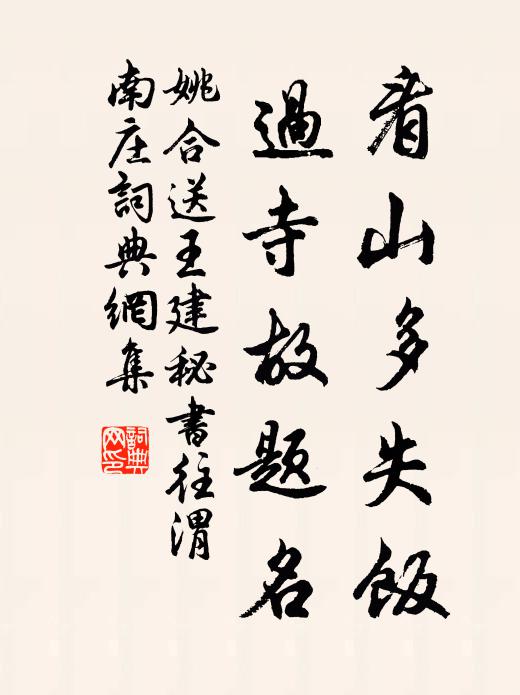 看山多失飯
過寺故題名
姚合送王建秘書往渭
南庄詞典網集
詞典
网印